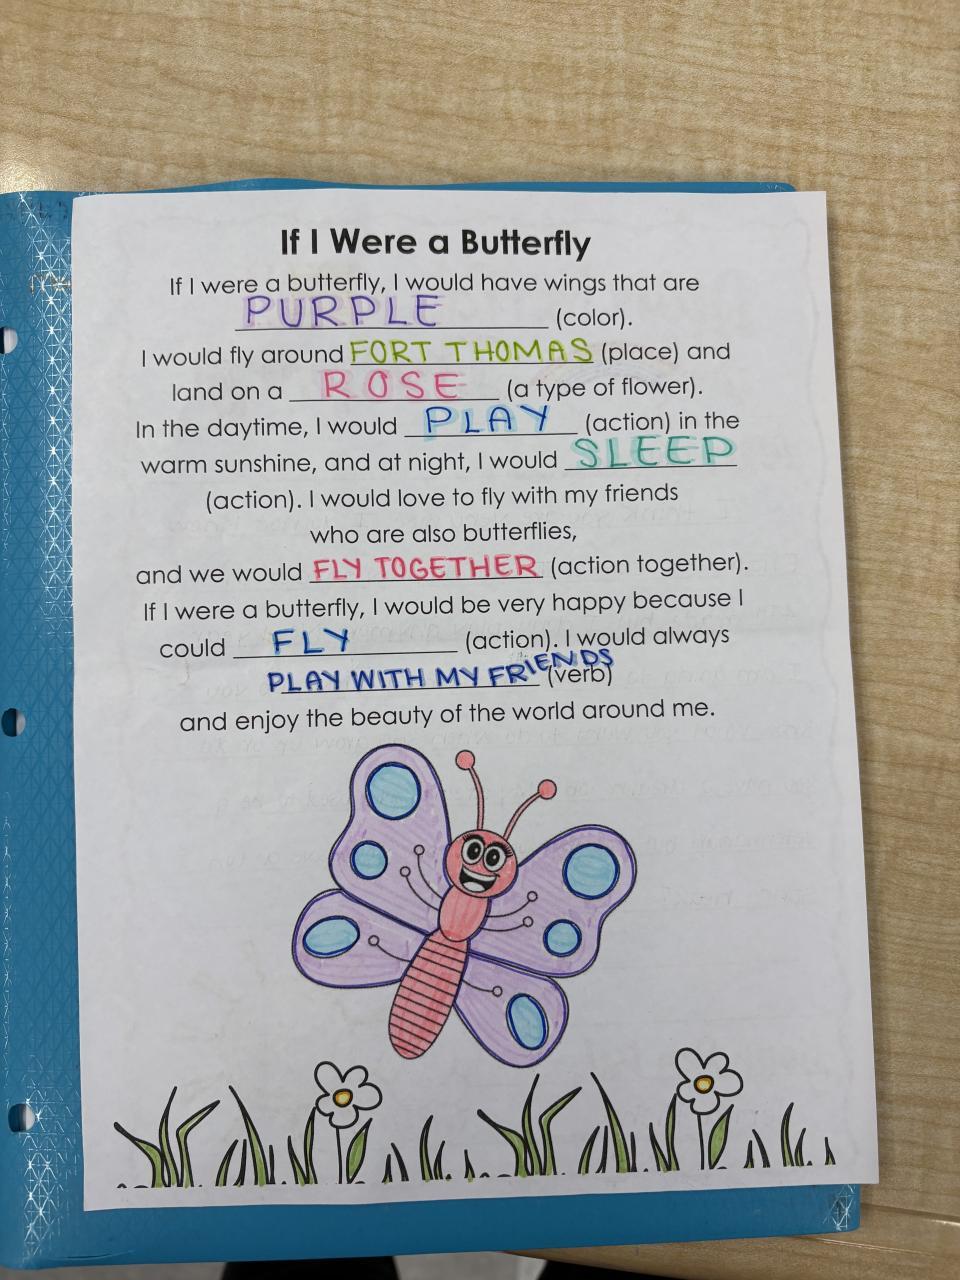 If I Were a Butterfly
If I were a butterfly, I would have wings that are
PURPLE (color).
I would fly around FORT THOMAS (place) and
land on a ROSE (a type of flower).
In the daytime, I would PLAY (action) in the
warm sunshine, and at night, I would SLEEP
(action). I would love to fly with my friends
who are also butterflies,
and we would FLY TOGETHER (action together).
If I were a butterfly, I would be very happy because I
could FLY (action). I would always
PLAY WITH MY FRIENDS (verb)
and enjoy the beauty of the world around me.